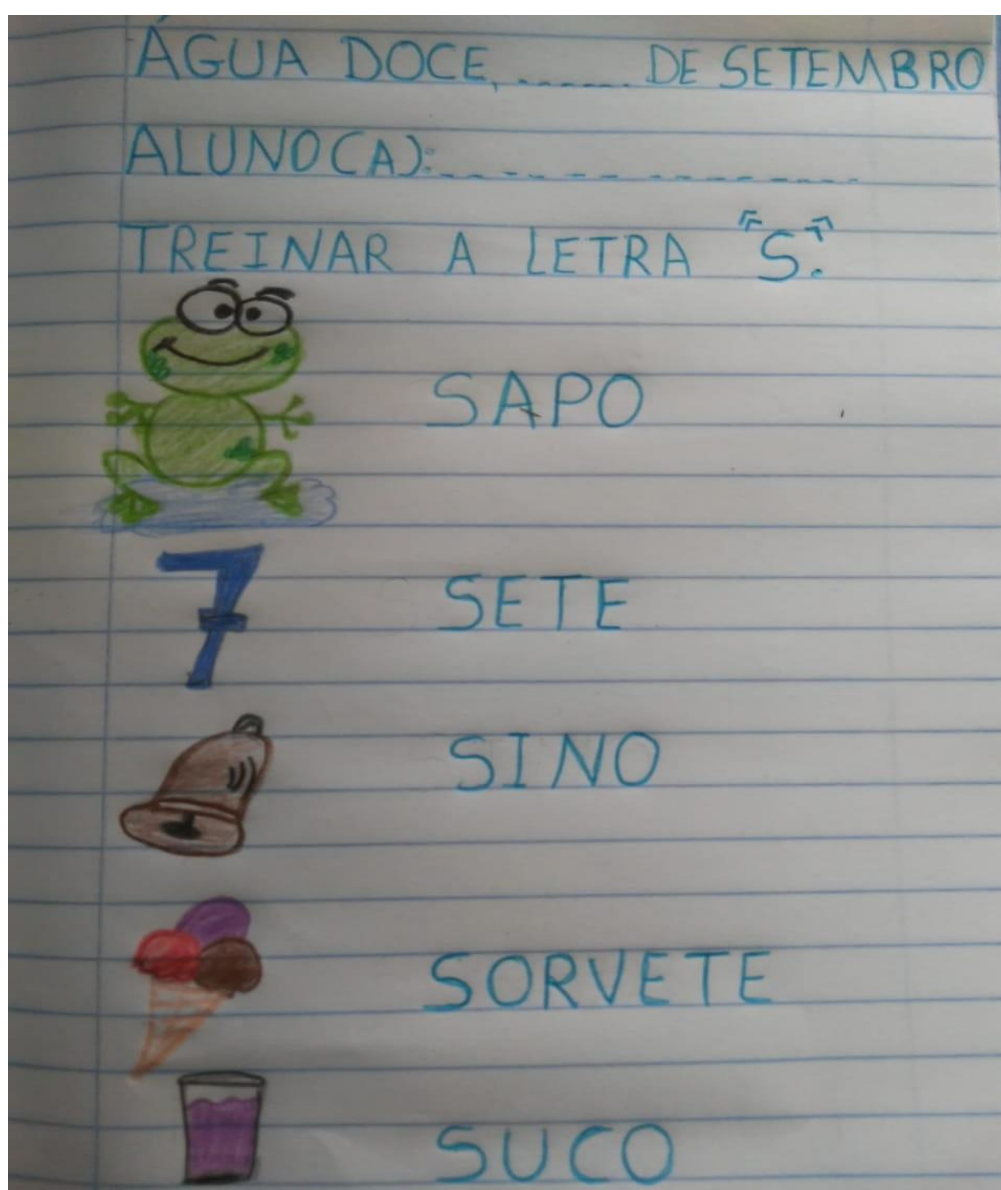 ÁGUA DOCE, ...... DE SETEMBRO
ALUNO(A):..................
TREINAR A LETRA "S".
SAPO
7 SETE
SINO
SORVETE
SUCO